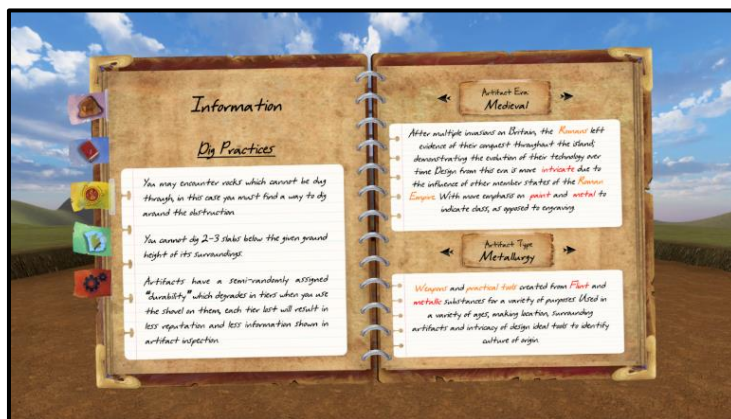 Information
Dig Practices
You may encounter rocks which cannot be dug
through, in this case you must find a way to dig
around the obstruction.
You cannot dig 2-3 slabs below the given ground
height of its surroundings.
Artifacts have a semi-randomly assigned
"durability" which degrades in tiers when you use
the shovel on them, each tier lost will result in
less reputation and less information shown in
artifact inspection.
Artifact Era:
Medieval
After multiple invasions on Britain, the Romans left
evidence of their conquest throughout the island;
demonstrating the evolution of their technology over
time. Design from this era is more intricate due to
the influence of other member states of the Roman
Empire. With more emphasis on paint and metal to
indicate class, as opposed to engraving.
Artifact Type
Metallurgy
Weapons and practical tools created from Flint and
metallic substances for a variety of purposes. Used in
a variety of ages, making location, surrounding
artifacts and intricacy of design ideal tools to identify
culture of origin.